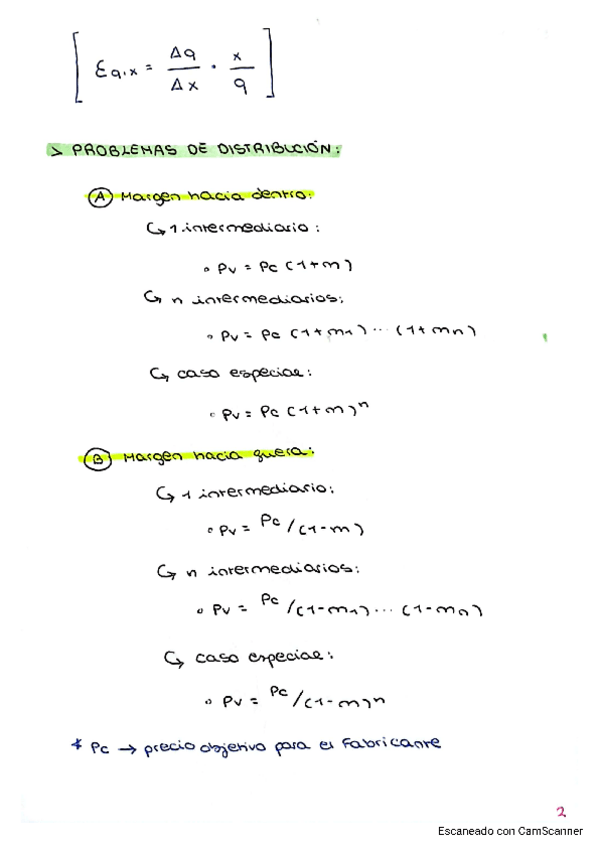 [ Eq,x = Δq/Δx · x/q ]
> PROBLEMAS DE DISTRIBUCIÓN:
(A) Margen hacia dentro:
↳ 1 intermediario:
∘ Pv = Pc (1+m)
↳ n intermediarios:
∘ Pv = Pc (1+m1) ... (1+mn)
↳ caso especial:
∘ Pv = Pc (1+m)ⁿ
(B) Margen hacia fuera:
↳ 1 intermediario:
∘ Pv = Pc/(1-m)
↳ n intermediarios:
∘ Pv = Pc/(1-m1) ... (1-mn)
↳ caso especial:
∘ Pv = Pc/(1-m)ⁿ
* Pc → precio objetivo para el Fabricante
2
Escaneado con CamScanner